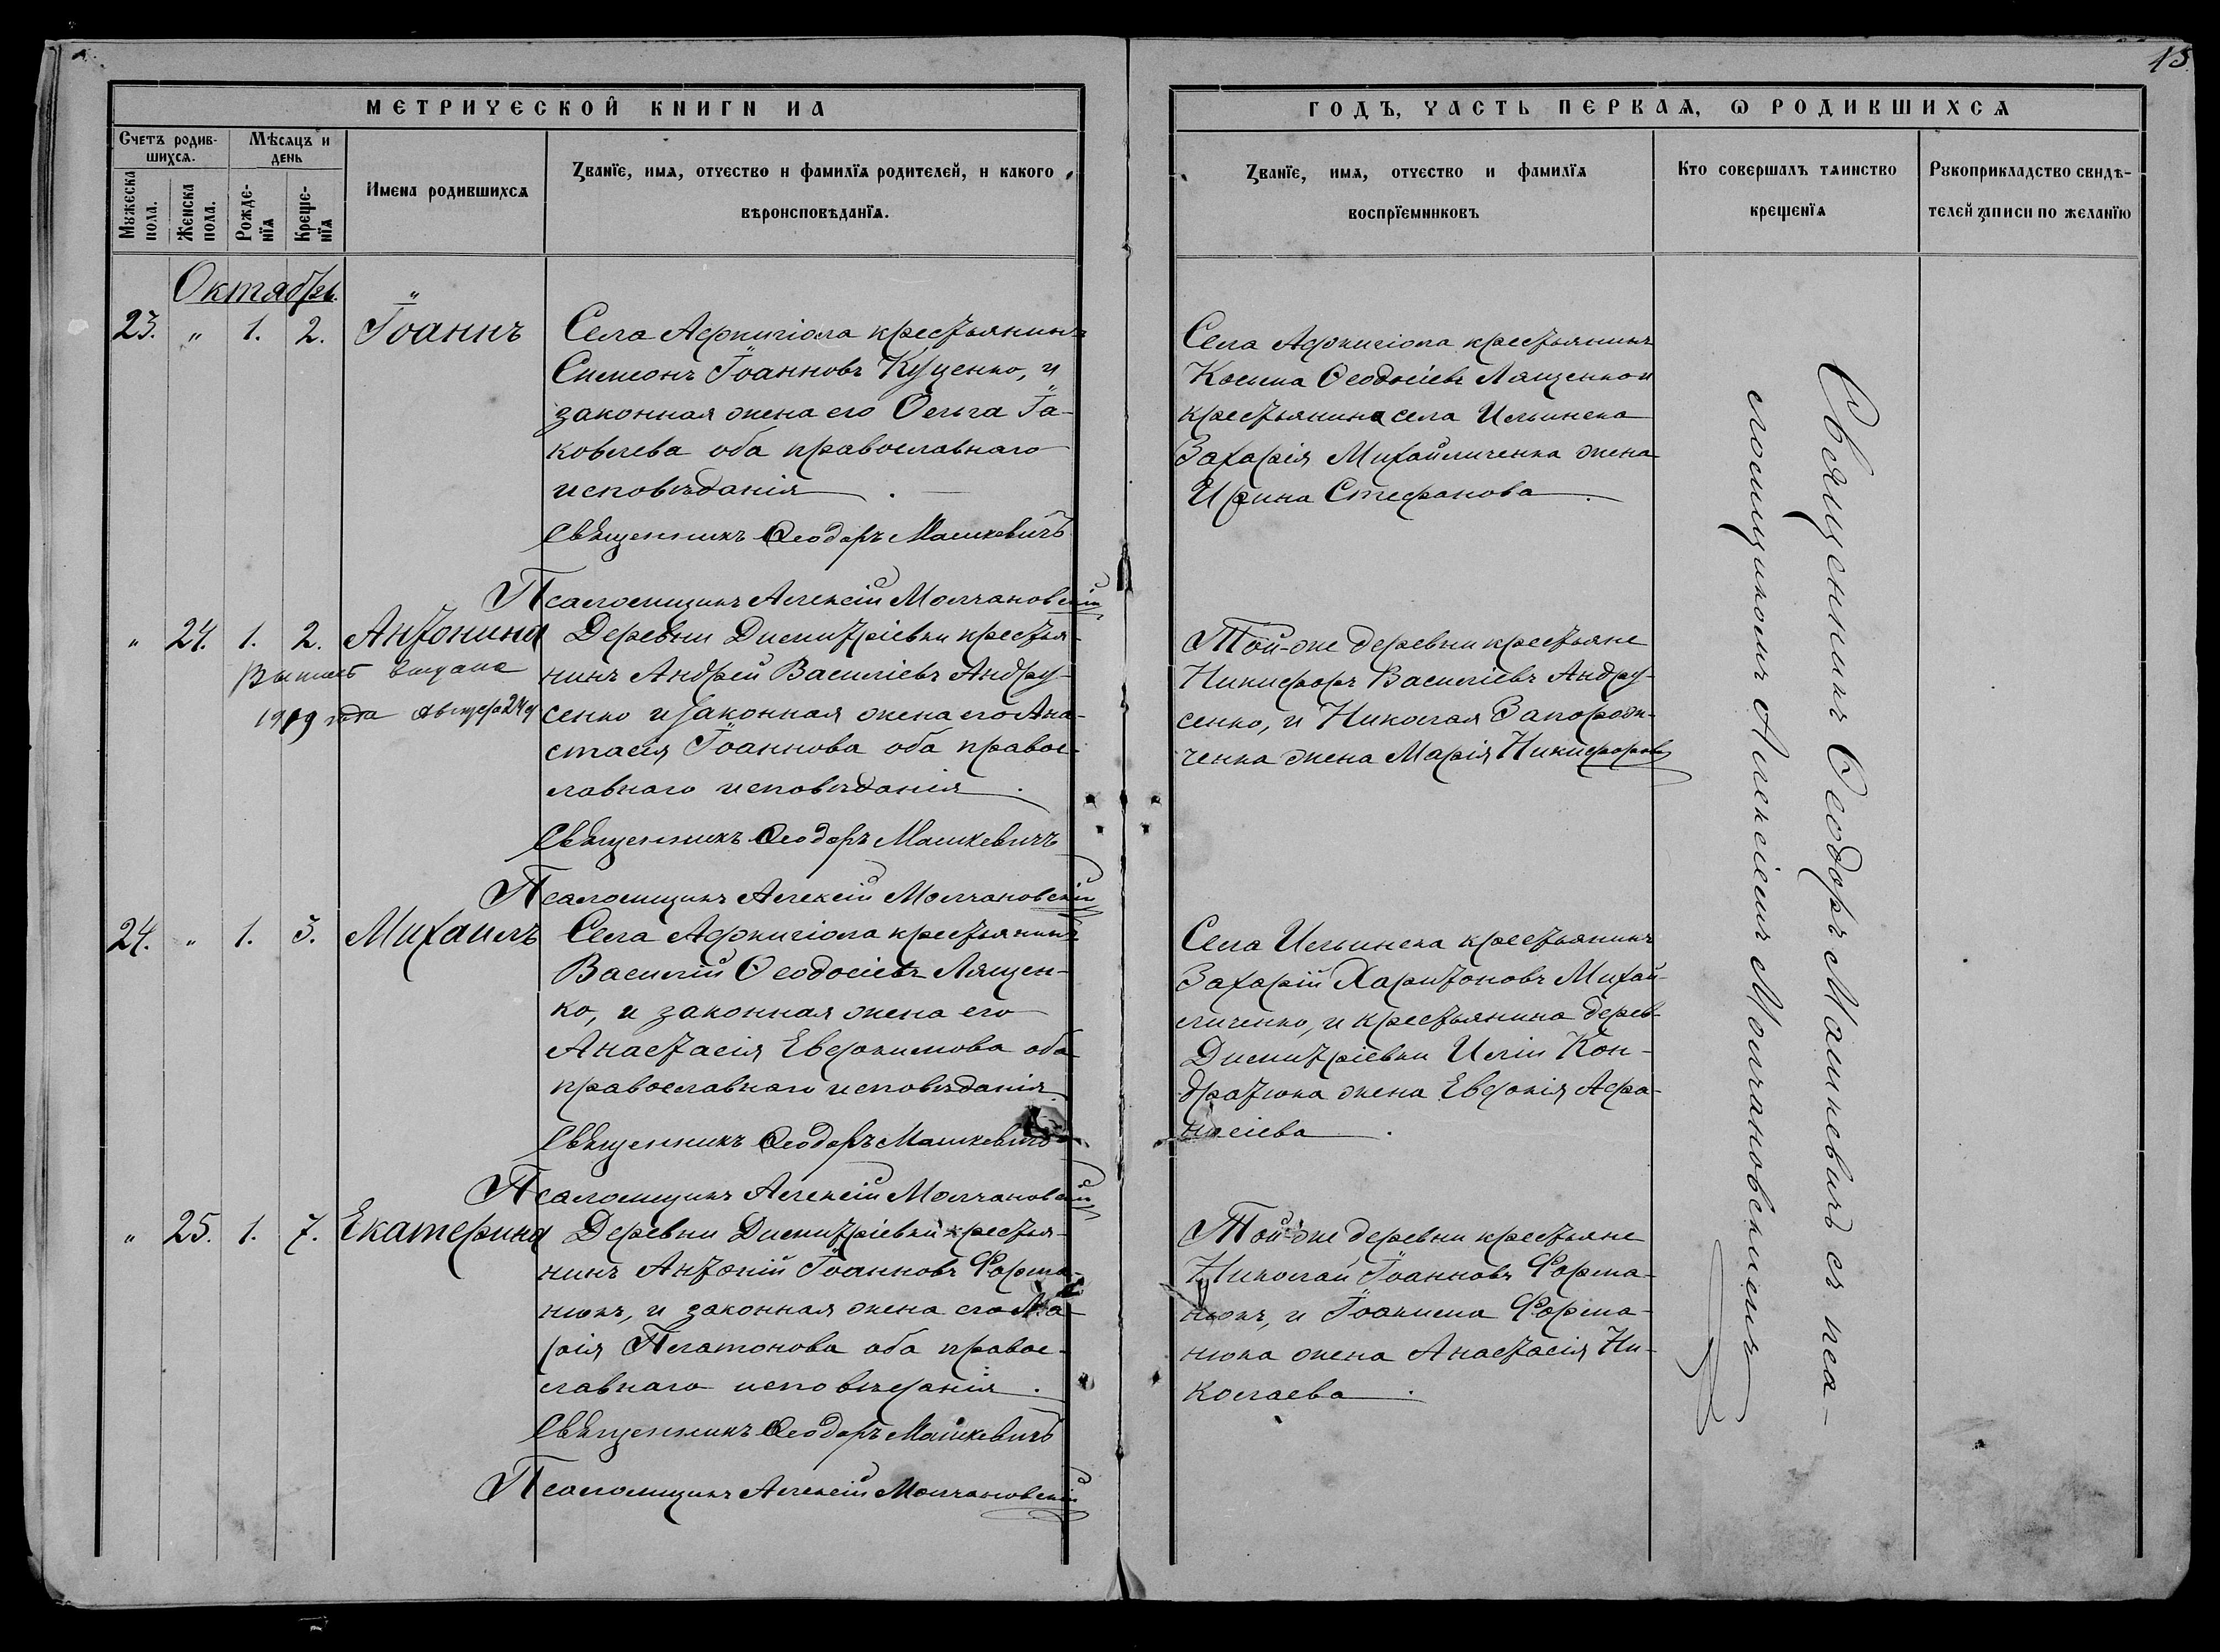 13
МЕТРИЧЕСКОЙ КНИГИ НА
ГОДЪ, ЧАСТЬ ПЕРВАЯ, Ѡ РОДИВШИХСѦ
Счетъ родив-
шихсѧ.
Мѣсѧцъ и
день
Мꙋжеска
пола.
Женска
пола.
Рожде-
нїѧ
Креще-
нїѧ
Имена родившихсѧ
Званїе, имѧ, отчество и фамилїѧ родителей, и какого
вѣроисповѣданїѧ.
Званїе, имѧ, отчество и фамилїѧ
воспрїемниковъ
Кто совершалъ таинство
крещенїѧ
Рꙋкоприкладство свидѣ-
телей записи по желанїю
Октябрь. "
23. " 1. 2. Іоаннъ
Села Афкичіола крестьянинъ
Симеонъ Іоанновъ Куценко, и
законная жена его Ольга Іа-
ковлева оба православнаго
исповѣданія.
Священникъ Ѳеодоръ Машкевичъ
Псаломщикъ Алексій Молчановскій
Села Афкичіола крестьянинъ
Косьма Ѳеодосіевъ Лященко и
крестьянина села Ильинска
Захарія Михайличенка жена
Ирина Стефанова.
" 24. 1. 2. Антонина
Выпись выдана
1909 года августа 24 д
Деревни Димитріевки крестья-
нинъ Андрей Василіевъ Андру-
сенко и законная жена его Ана-
стасія Іоаннова оба правос-
лавнаго исповѣданія.
Священникъ Ѳеодоръ Машкевичъ
Псаломщикъ Алексій Молчановскій
Той-же деревни крестьяне
Никифоръ Василіевъ Андру-
сенко, и Николая Запорож-
ченка жена Марія Никифорова
24. " 1. 3. Михаилъ
Села Афкичіола крестьянинъ
Василій Ѳеодосіевъ Лящен-
ко, и законная жена его
Анастасія Евфимова оба
православнаго исповѣданія
Священникъ Ѳеодоръ Машкевичъ
Псаломщикъ Алексій Молчановскій
Села Ильинска крестьянинъ
Захарій Харитоновъ Михай-
личенко, и крестьянина дерев.
Димитріевки Иліи Кон-
дратюка жена Евдокія Афа-
насіева.
" 25. 1. 7. Екатерина
Деревни Димитріевки крестья-
нинъ Антоній Іоанновъ Форма-
нюкъ, и законная жена его Ма-
рія Платонова оба правос-
лавнаго исповѣданія.
Священникъ Ѳеодоръ Машкевичъ
Псаломщикъ Алексій Молчановскій
Той-же деревни крестьяне
Николай Іоанновъ Форма-
нюкъ, и Іоакима Форма-
нюка жена Анастасія Ни-
колаева.
Священникъ Ѳеодоръ Машкевичъ съ пса-
ломщикомъ Алексіемъ Молчановскимъ